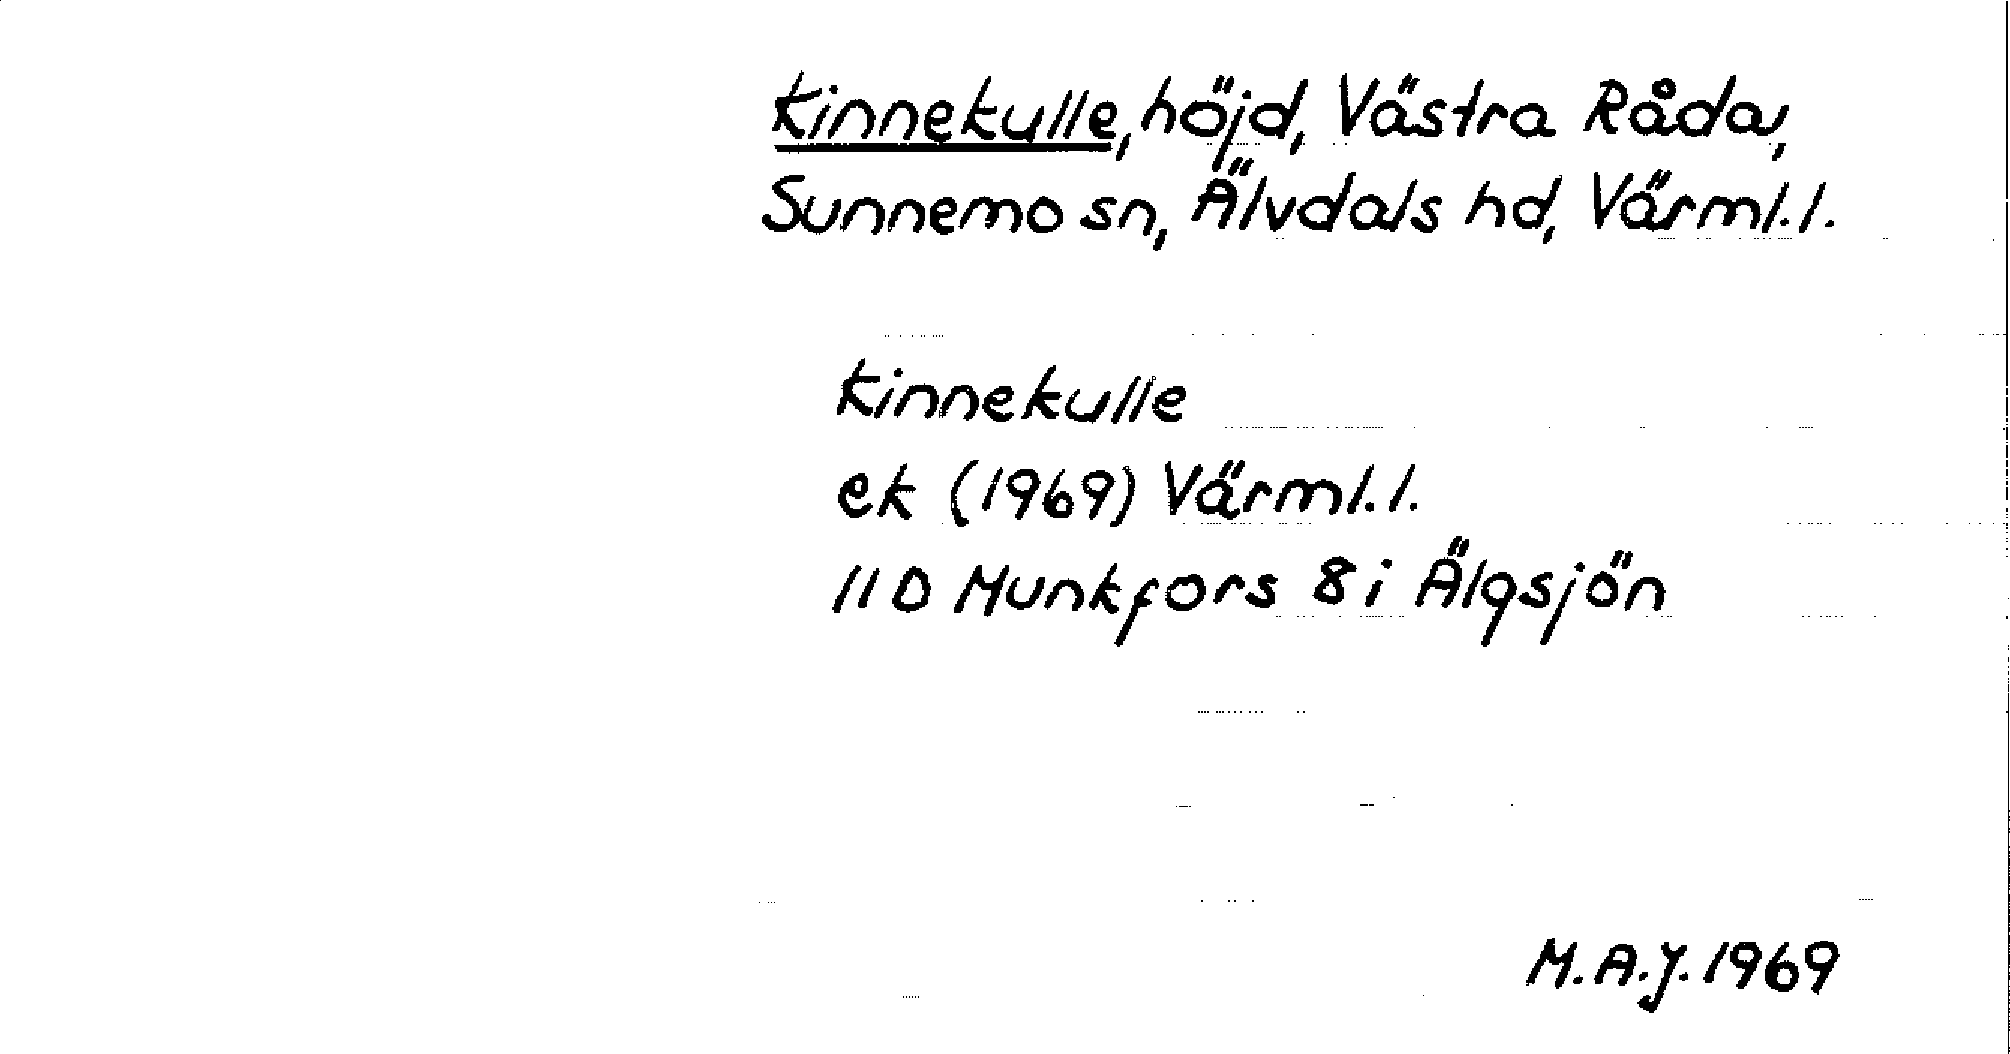 Kinnekulle, höjd, Västra Råda,
Sunnemo sn, Älvdals hd, Värml.l.
Kinnekulle
ek (1969) Värml.l.
11 D Munkfors 8 i Älgsjön
M.A.J. 1969